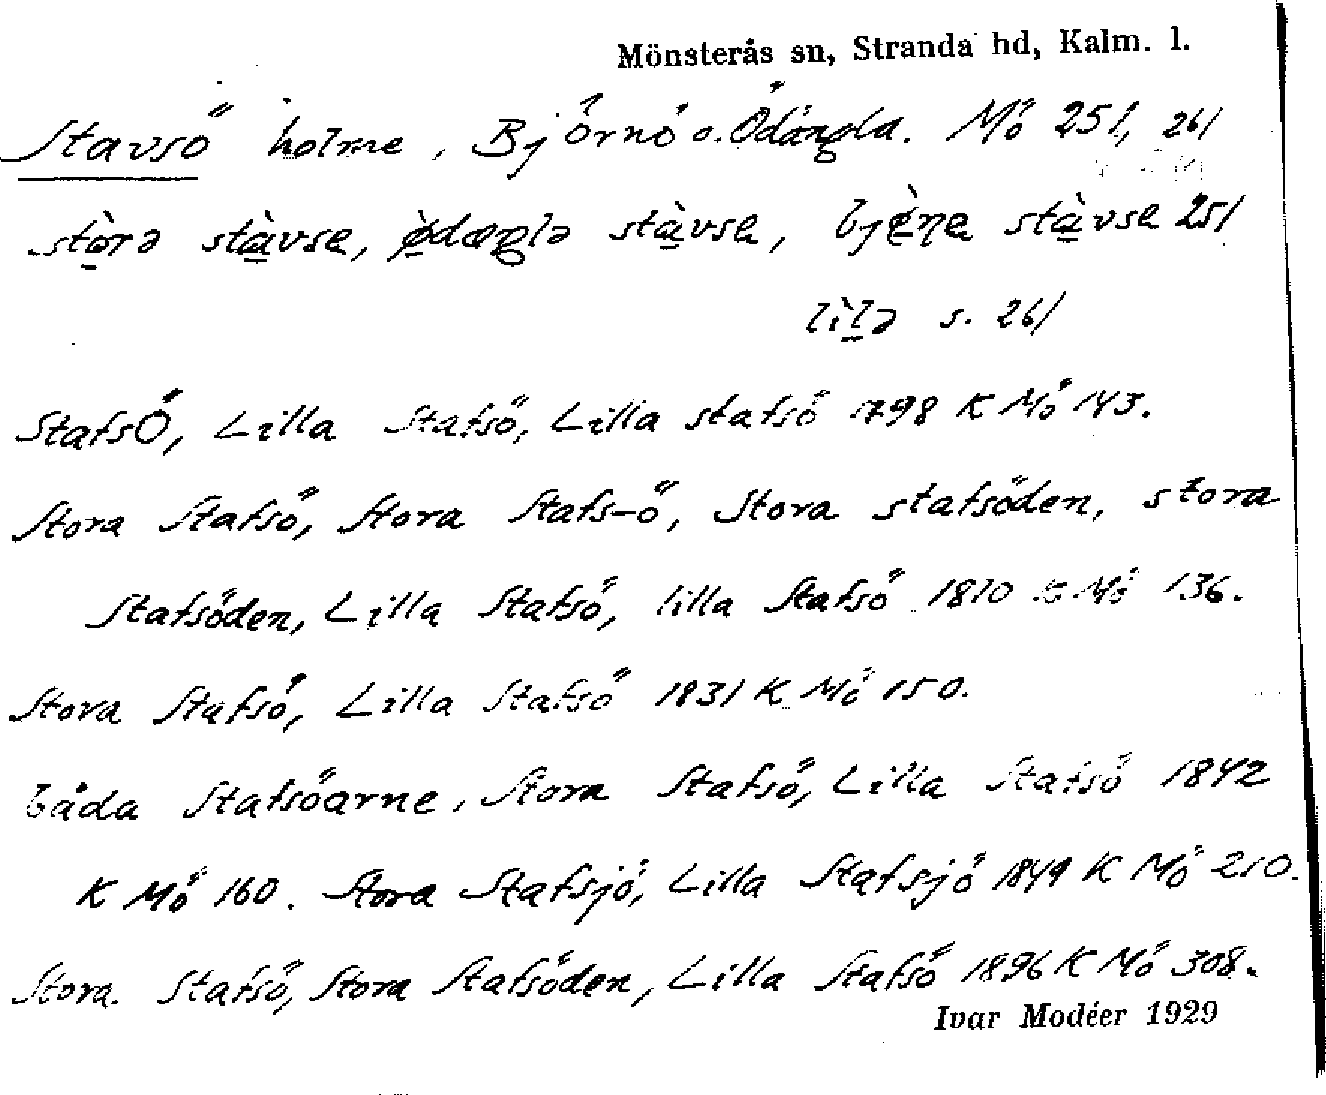 Mönsterås sn, Stranda hd, Kalm. l.
Stavsö holme, Björnö o. Ödängla. Mö 251, 261
stòrə stàvsɐ, ø̀dæŋlə stàvsɐ, bjɶ̀ɳɐ stàvsɐ 251
lìlə s. 261
StafsÖ, Lilla Stafsö, Lilla stafsö 1798 K Mö 143.
Stora Stafsö, Stora Stafs-ö, Stora stafsöden, stora
Stafsöden, Lilla Stafsö, lilla Stafsö 1810 K Mö 136.
Stora Stafsö, Lilla Stafsö 1831 K Mö 150.
båda Stafsöarne, Stora Stafsö, Lilla Stafsö 1842
K Mö 160. Stora Stafsjö, Lilla Stafsjö 1849 K Mö 210.
Stora Stafsö, Stora Stafsöden, Lilla Stafsö 1896 K Mö 308.
Ivar Modéer 1929